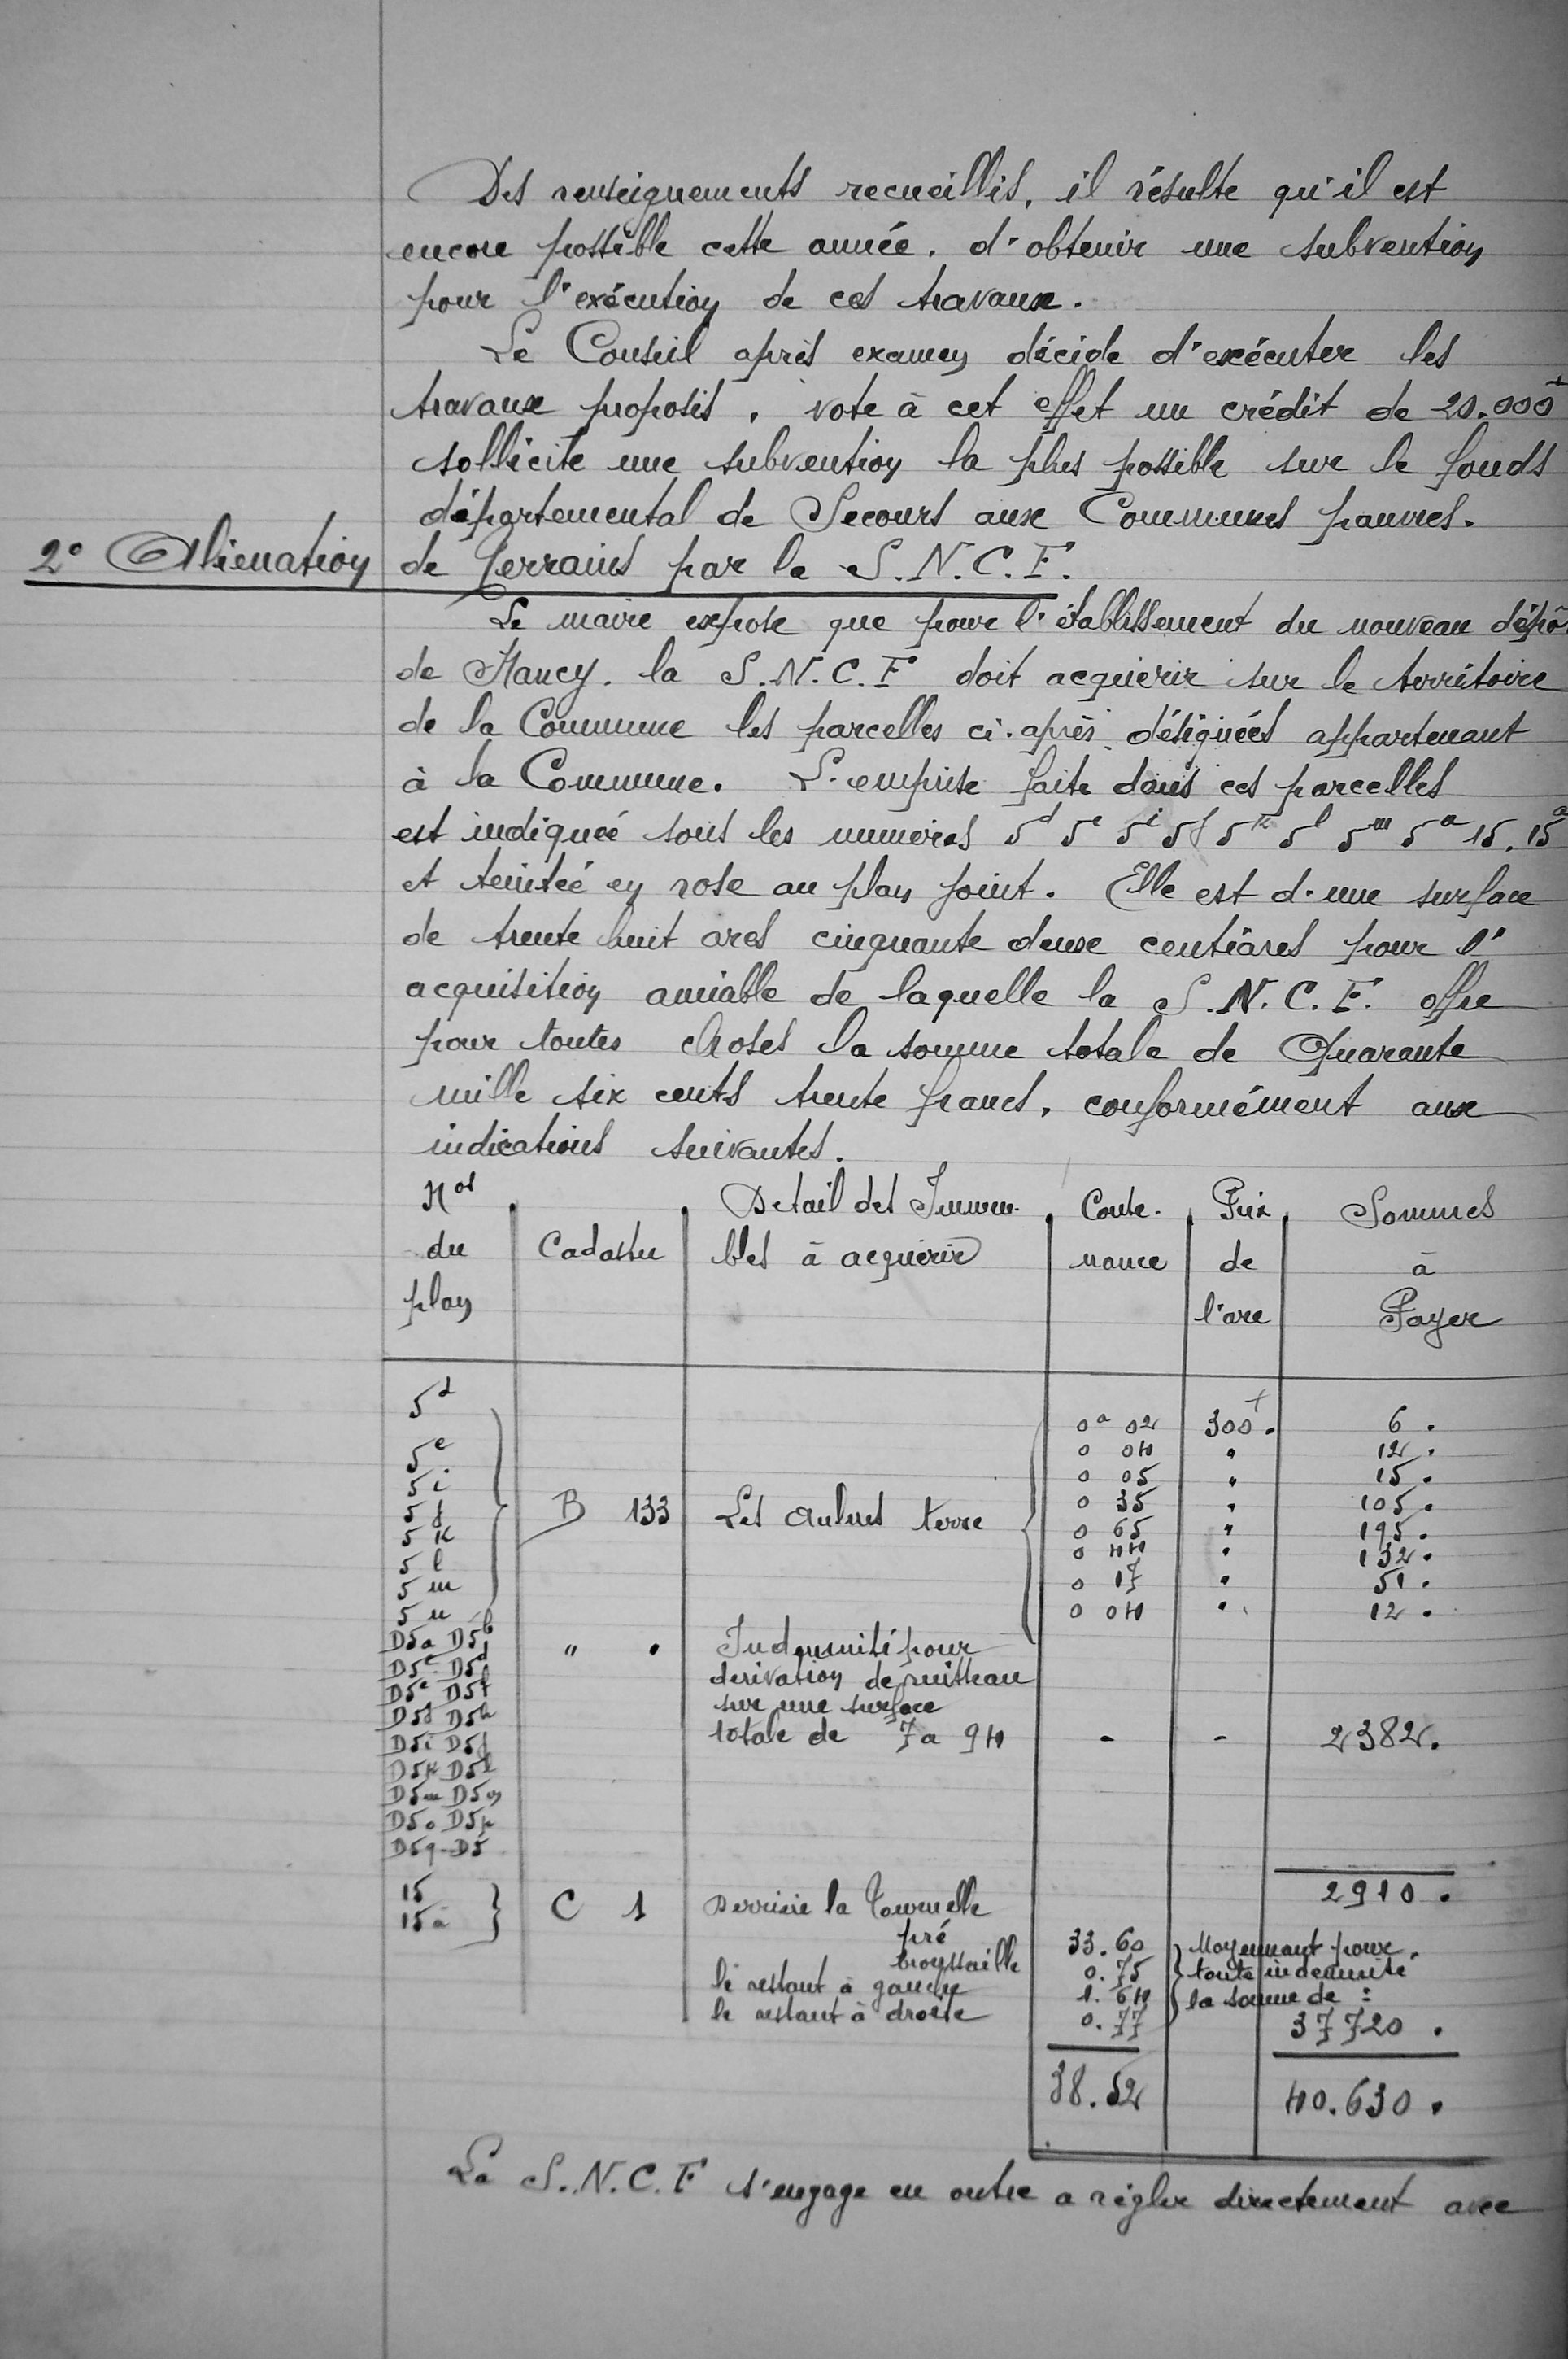 Des renseignements recueillis, il résulte qu'il est
encore possible cette année, d'obtenir une subvention
pour l'exécution de ces travaux.
Le Conseil après examen décide d'exécuter les
travaux proposés, vote à cet effet un crédit de 20.000f
sollicite une subvention la plus possible sur le fonds
départemental de Secours aux Communes pauvres.
2° Aliénation de Terrains par la S.N.C.F.
Le maire expose que pour l'établissement du nouveau dépô
de Nancy. la S.N.C.F doit acquérir sur le territoire
de la Commune les parcelles ci-après désignées appartenant
à la Commune. L'emprise faite dans ces parcelles
est indiquée sous les numéros 5d 5e 5i 5j 5k 5l 5m 5a 15. 15a
et teintée en rose au plan joint. Elle est d'une surface
de trente huit ares cinquante deux centiares pour l'
acquisition amiable de laquelle la S.N.C.F. offre
pour toutes choses la somme totale de Quarante
mille six cents trente francs, conformément aux
indications suivantes.
Nos du plan | Cadastre | Detail des Immeubles à acquérir | Contenance | Prix de l'are | Sommes à Payer
5d 0a 02 300f. 6.
5e 0 04 " 12.
5i 0 05 " 15.
5j 0 35 " 105.
5k B 133 Les Aulnes terre 0 65 " 195.
5l 0 44 " 132.
5m 0 17 " 51.
5n 0 04 " 12.
D5a D5b " " Indemnité pour
D5c D5d dérivation de ruisseau
D5e D5f sur une surface
D5g D5h totale de 7a 94 - - 2382.
D5i D5j
D5k D5l
D5m D5n
D5o D5p
D5q-D5
2910.
15 15a C 1 Derrière la Tournelle
pré 33.60 Moyennant pour
broussaille 0.75 toute indemnité
le restant à gauche 1.64 la somme de :
le restant à droite 0.77 37720.
38.52 40.630.
La S.N.C.F s'engage en outre a régler directement avec